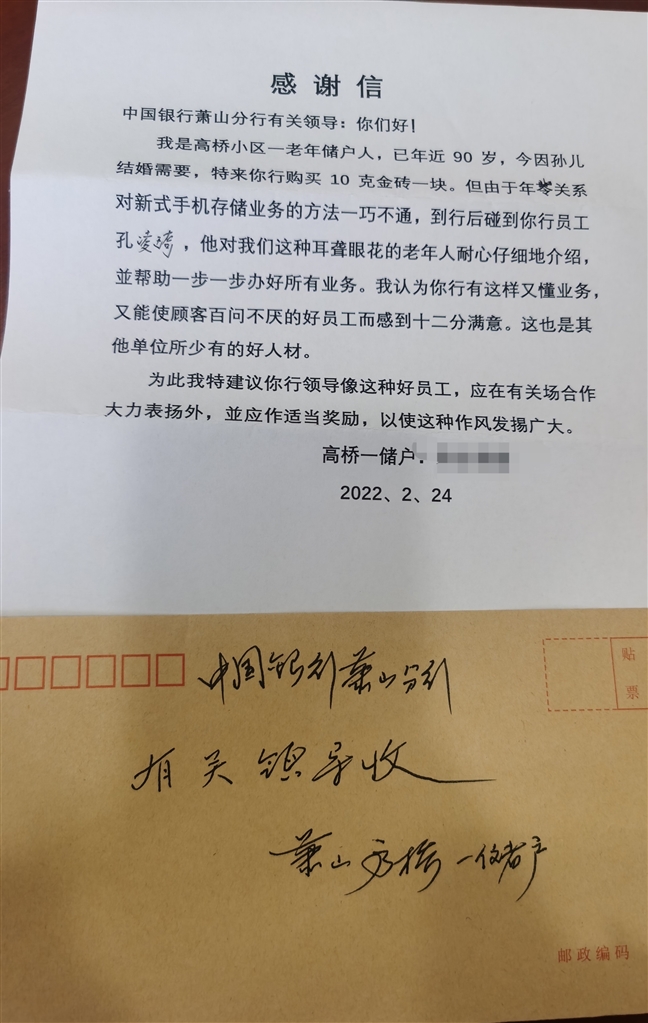 感谢信
中国银行萧山分行有关领导：你们好！
我是高桥小区一老年储户人，已年近 90 岁，今因孙儿
结婚需要，特来你行购买 10 克金砖一块。但由于年零关系
对新式手机存储业务的方法一巧不通，到行后碰到你行员工
孔凌琦，他对我们这种耳聋眼花的老年人耐心仔细地介绍，
並帮助一步一步办好所有业务。我认为你行有这样又懂业务，
又能使顾客百问不厌的好员工而感到十二分满意。这也是其
他单位所少有的好人材。
为此我特建议你行领导像这种好员工，应在有关场合作
大力表扬外，並应作适当奖励，以使这种作风发揚广大。
高桥一储户.
2022、2、24
贴
票
中国银行萧山分行
有关领导收
萧山高桥一储户
邮政编码